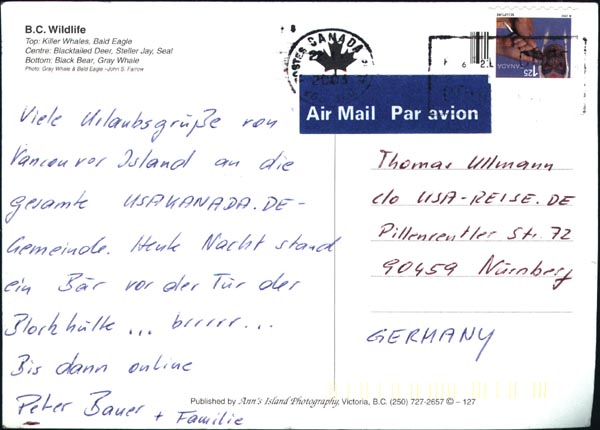 B.C. Wildlife
Top: Killer Whales, Bald Eagle
Centre: Blacktailed Deer, Steller Jay, Seal
Bottom: Black Bear, Gray Whale
Photo: Gray Whale & Bald Eagle ~John S. Farrow
Viele Urlaubsgrüße von
Vancouver Island an die
gesamte USAKANADA.DE-
Gemeinde. Heute Nacht stand
ein Bär vor der Tür der
Blockhütte ... brrrrr...
Bis dann online
Peter Bauer + Familie
CANADA
Air Mail Par avion
CANADA
1.25
Thomas Ullmann
c/o USA-REISE.DE
Pillenreuther Str. 72
90459 Nürnberg
GERMANY
Published by Ann's Island Photography, Victoria, B.C. (250) 727-2657 © – 127